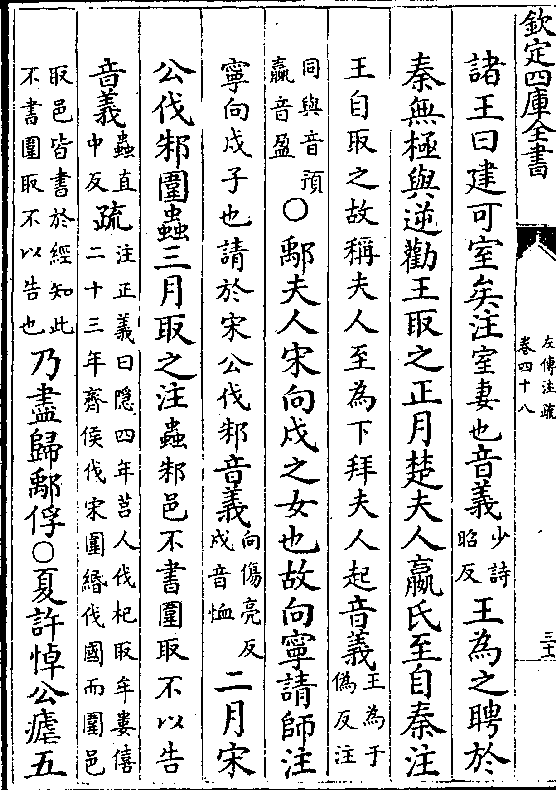 欽定四庫全書
左傳注疏
卷四十八
諸王曰建可室矣注室妻也音義少詩昭反王為之聘於
秦無極與逆勸王取之正月楚夫人嬴氏至自秦注
王自取之故稱夫人至為下拜夫人起音義王為于偽反注
同與音預嬴音盈○鄅夫人宋向戌之女也故向寧請師注
寧向戌子也請於宋公伐邾音義向傷亮反戌音恤二月宋
公伐邾圍蟲三月取之注蟲邾邑不書圍取不以告
音義蟲直中反疏注正義曰隱四年莒人伐杞取牟婁僖二十三年齊侯伐宋圍緡伐國而圍邑
取邑皆書於經知此不書圍取不以告也乃盡歸鄅俘○夏許悼公瘧五